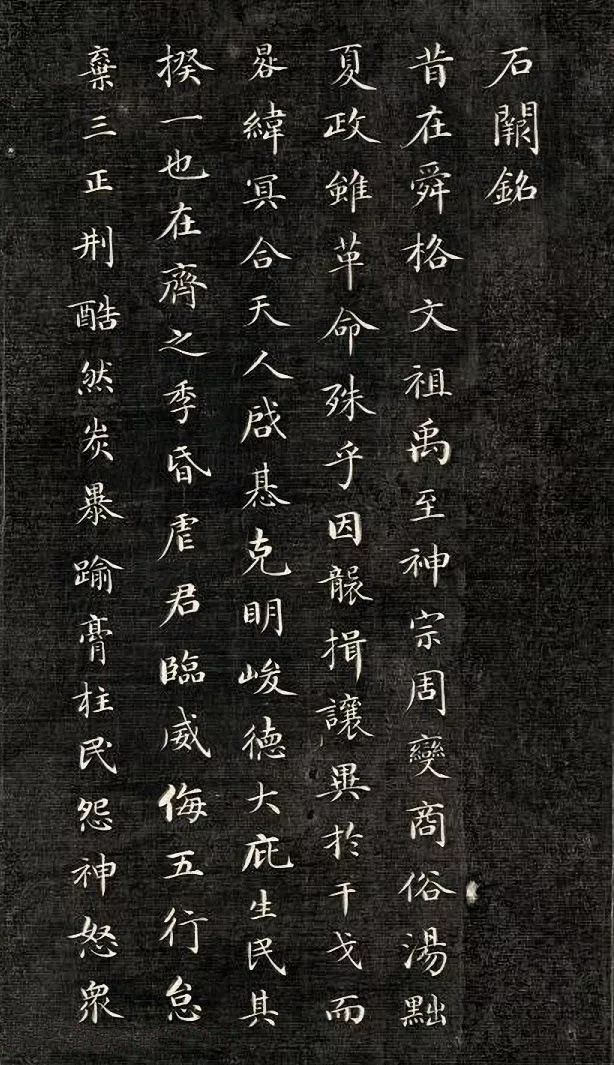 石闕銘
昔在舜格文祖禹至神宗周變商俗湯黜
夏政雖革命殊乎因襲揖讓異於干戈而
晷緯冥合天人啟惎克明峻德大庇生民其
揆一也在齊之季昏虐君臨威侮五行怠
棄三正刑酷然炭暴踰膏柱民怨神怒眾